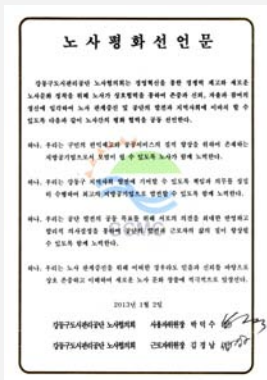 노사평화선언문
강동구도시관리공단 노사협의회는 경영혁신을 통한 경쟁력 제고와 새로운
노사문화 정착을 위해 노사가 상호협력을 통하여 존중과 신뢰, 자율과 참여의
정신에 입각하여 노사 관계증진 및 공단의 발전과 지역사회에 이바지 할 수
있도록 다음과 같이 노사간의 평화 협력을 공동 선언한다.
하나. 우리는 구민의 편익제고와 공공서비스의 질적 향상을 위하여 존재하는
지방공기업으로서 모범이 될 수 있도록 노사가 함께 노력한다.
하나. 우리는 강동구 지역사회 발전에 기여할 수 있도록 책임과 의무를 성실
히 수행하여 최고의 지방공기업으로 발전할 수 있도록 함께 노력한다.
하나. 우리는 공단 발전의 공동 목표를 위해 서로의 의견을 최대한 반영하고
합리적 의사결정을 통하여 공단의 발전과 근로자의 삶의 질이 향상될
수 있도록 함께 노력한다.
하나. 우리는 노사 관계증진을 위해 어떠한 경우라도 믿음과 신뢰를 바탕으로
상호 존중하고 이해하여 새로운 노사 문화 창출에 적극적으로 임한다.
2013년 1월 2일
강동구도시관리공단 노사협의회 사용자위원장 박덕수
강동구도시관리공단 노사협의회 근로자위원장 김경남